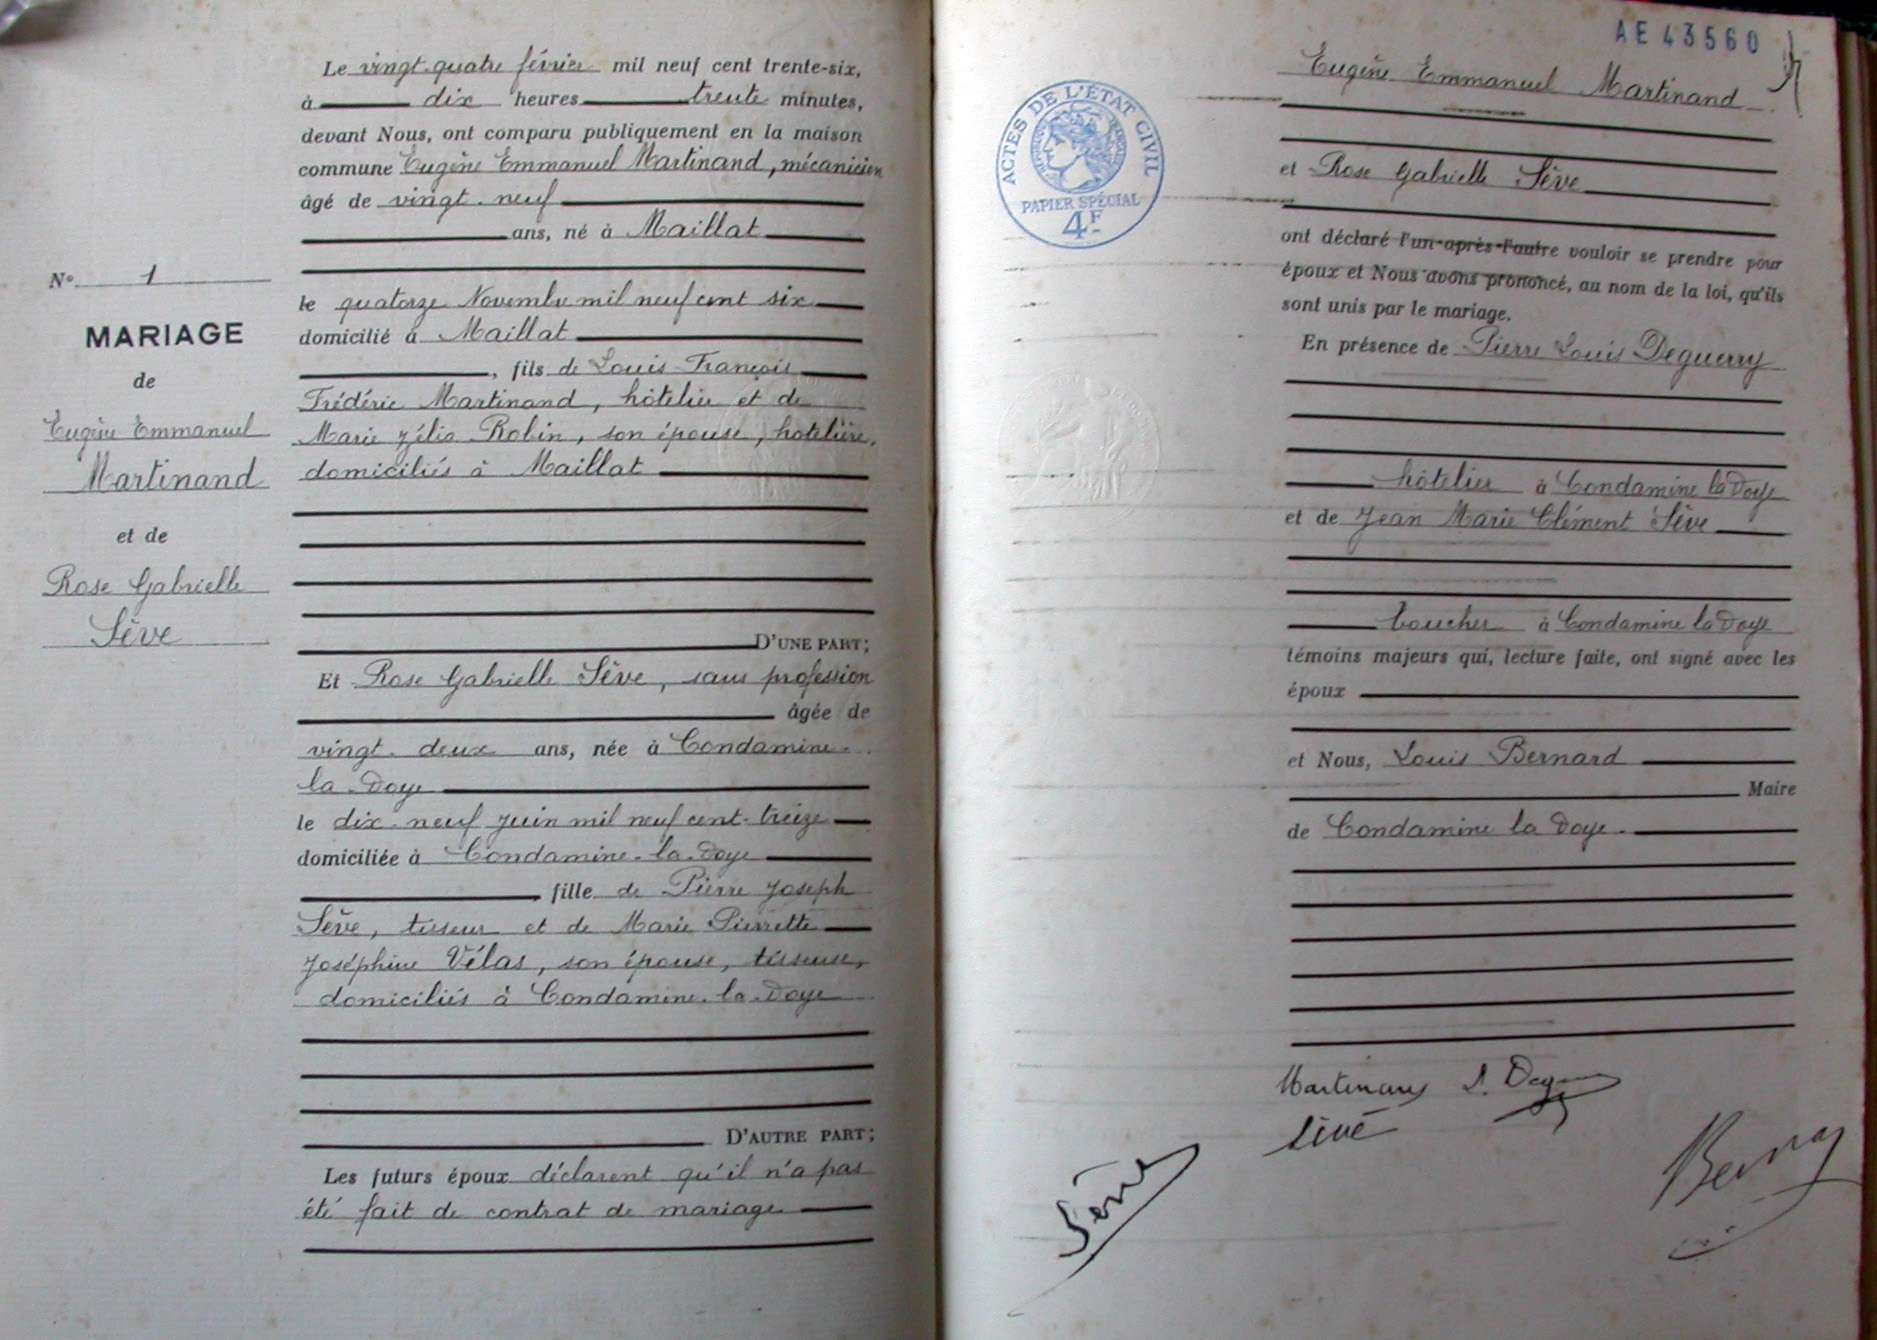 Le vingt-quatre février mil neuf cent trente-six,
à dix heures trente minutes,
devant Nous, ont comparu publiquement en la maison
commune Eugène Emmanuel Martinand, mécanicien
âgé de vingt-neuf
ans, né à Maillat
le quatorze Novembre mil neuf cent six
domicilié à Maillat
, fils de Louis François
Frédéric Martinand, hôtelier et de
Marie Zélia Robin, son épouse, hotelière,
domiciliés à Maillat
D'UNE PART;
Et Rose Gabrielle Sève, sans profession
âgée de
vingt-deux ans, née à Condamine-
la-Doye
le dix-neuf Juin mil neuf cent-treize
domiciliée à Condamine-la-Doye
, fille de Pierre Joseph
Sève, tisseur et de Marie Pierrette
Joséphine Vélas, son épouse, tisseuse,
domiciliés à Condamine-la-Doye
D'AUTRE PART;
Les futurs époux déclarent qu'il n'a pas
été fait de contrat de mariage
N° 1
MARIAGE
de
Eugène Emmanuel
Martinand
et de
Rose Gabrielle
Sève
AE 43560
ACTES DE L'ÉTAT CIVIL
PAPIER SPÉCIAL
4F
Eugène Emmanuel Martinand
et Rose Gabrielle Sève
ont déclaré l'un après l'autre vouloir se prendre pour
époux et Nous avons prononcé, au nom de la loi, qu'ils
sont unis par le mariage.
En présence de Pierre Louis Deguerry
hôtelier à Condamine la Doye
et de Jean Marie Clément Sève
boucher à Condamine la Doye
témoins majeurs qui, lecture faite, ont signé avec les
époux
et Nous, Louis Bernard
Maire
de Condamine la Doye.
Martinand
Sève